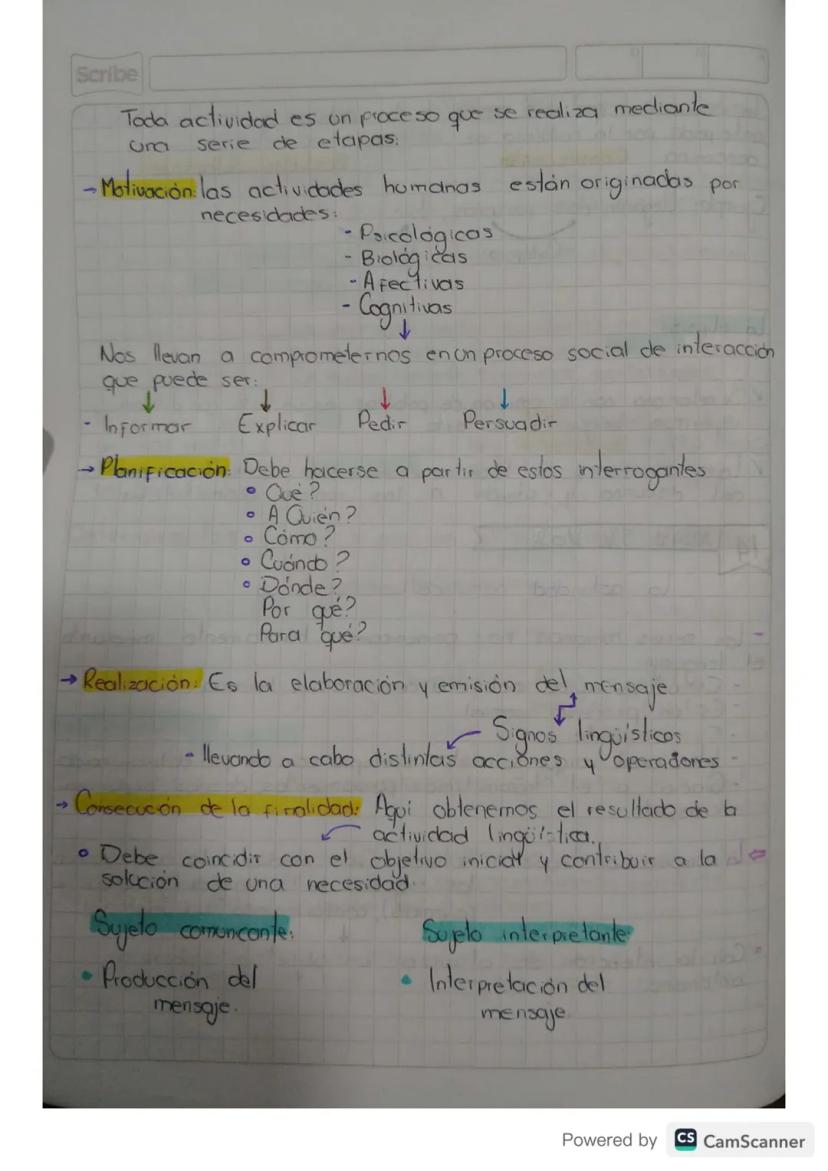 Scribe
Toda actividad es un proceso que se realiza mediante
una serie de etapas.
→ Motivación: las actividades humanas están originadas por
necesidades:
- Psicológicas
- Biológicas
- Afectivas
- Cognitivas
↓
Nos llevan a comprometernos en un proceso social de interacción
que puede ser:
↓ ↓ ↓ ↓
- Informar Explicar Pedir Persuadir
→ Planificación: Debe hacerse a partir de estos interrogantes
• Qué?
• A Quién?
• Cómo?
• Cuándo?
• Dónde?
Por qué?
Para qué?
→ Realización: Es la elaboración y emisión del mensaje
Signos lingüísticos
- llevando a cabo distintas acciones y operadores
→ Consecución de la finalidad: Aquí obtenemos el resultado de la
actividad lingüística.
• Debe coincidir con el objetivo inicial y contribuir a la
solución de una necesidad.
Sujeto comuncante: Sujeto interpretante:
• Producción del • Interpretación del
mensaje. mensaje.
Powered by CS CamScanner